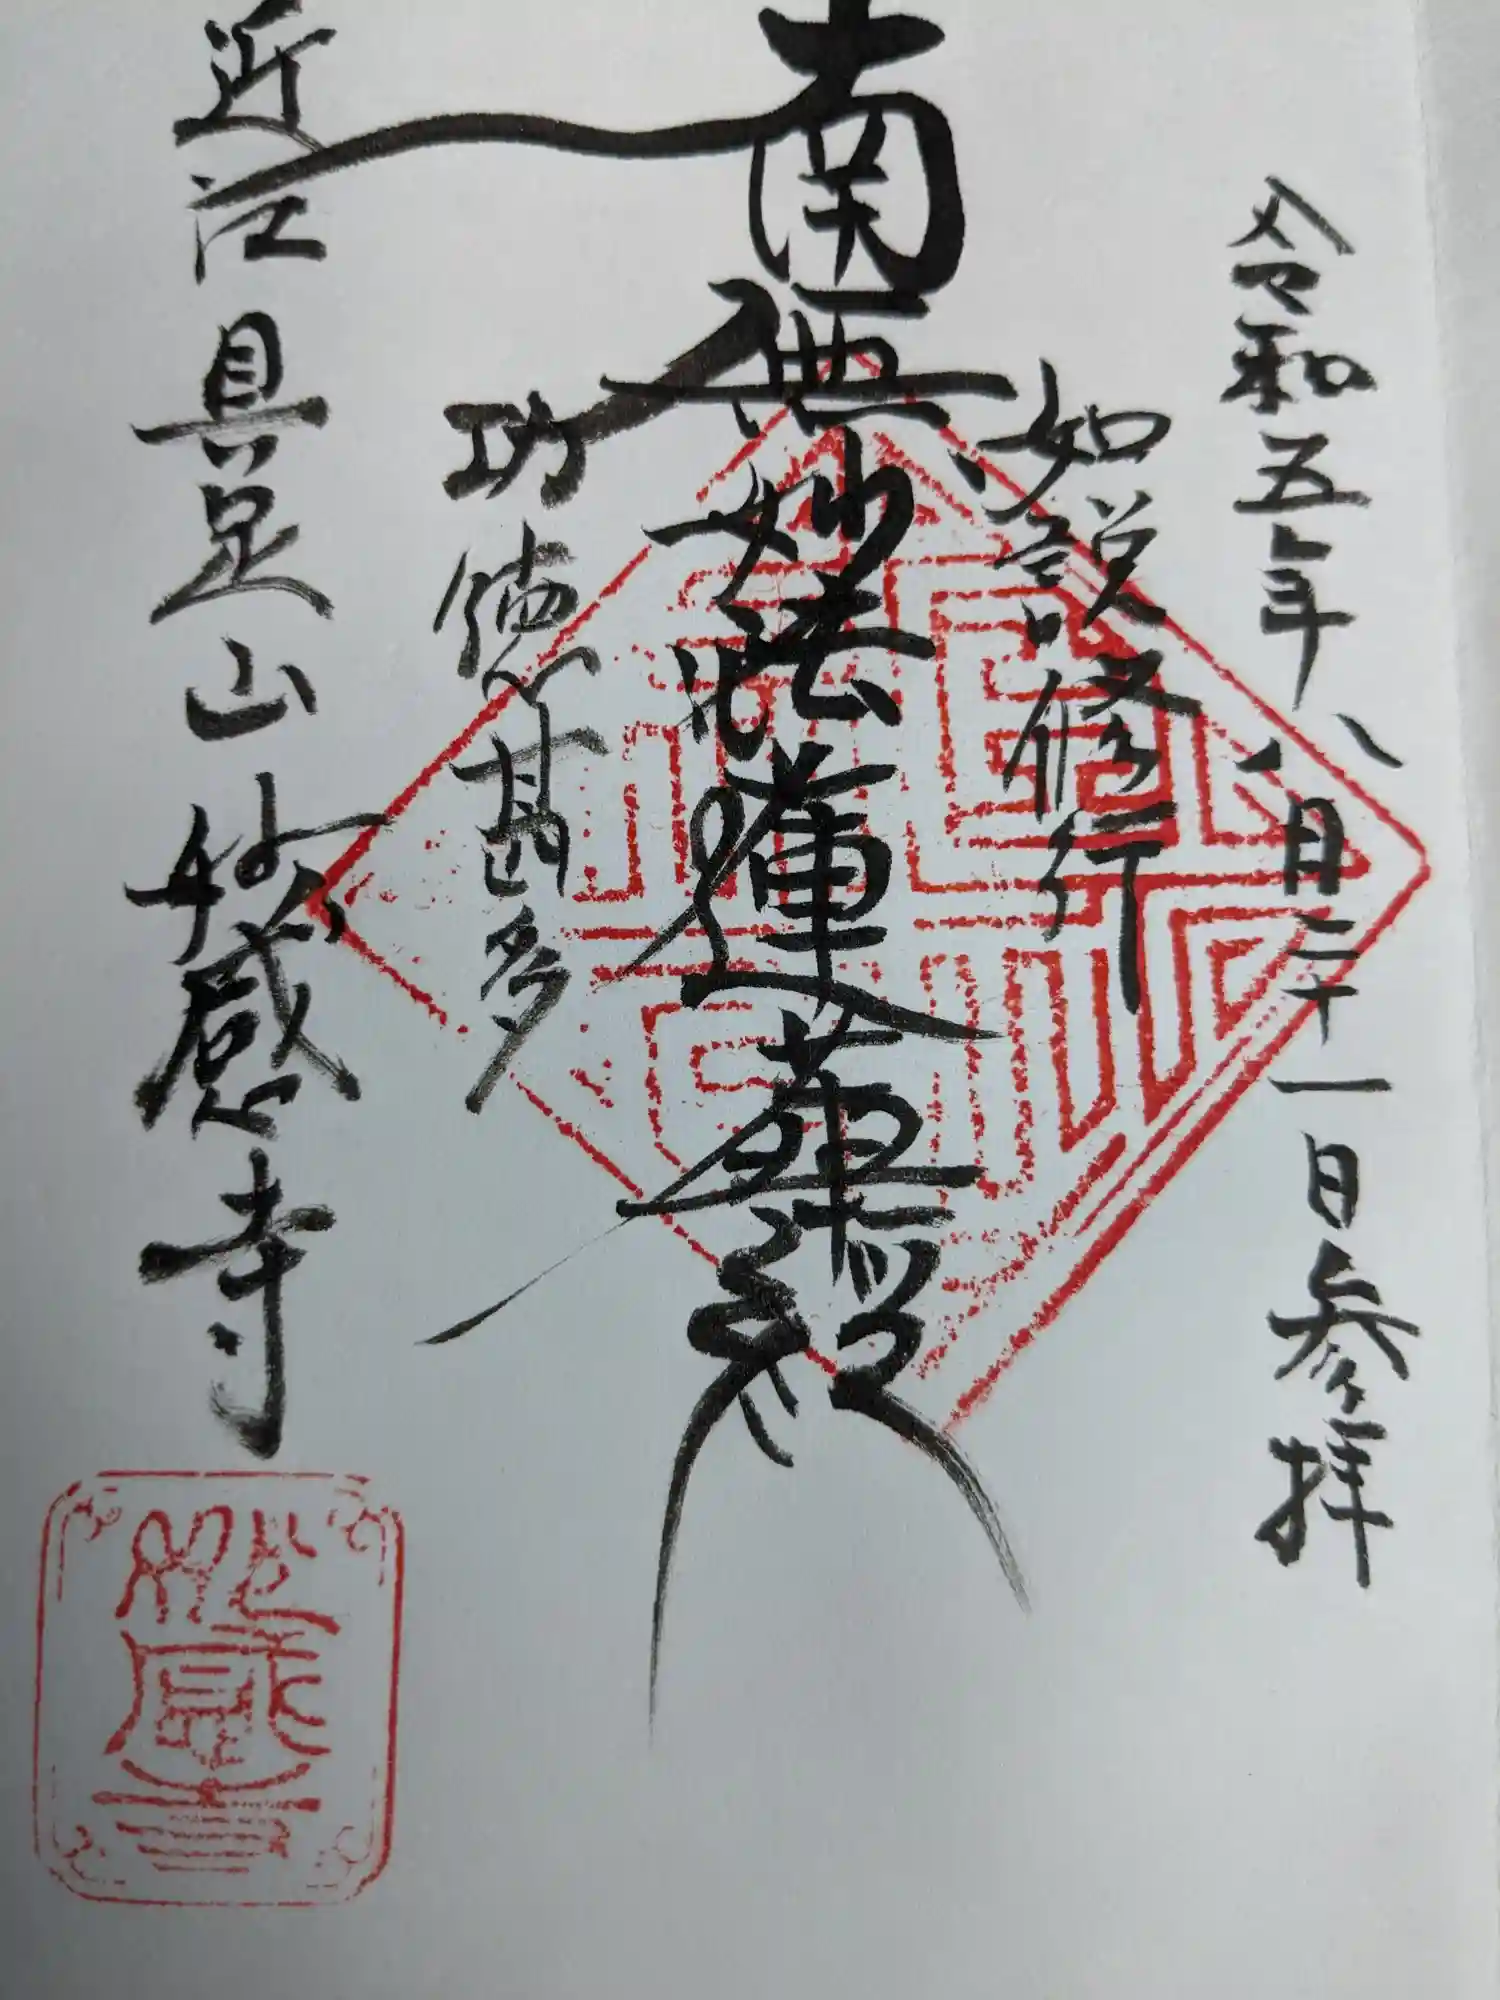 令和五年八月二十一日参拝
如説修行
南無妙法蓮華経
功徳甚多
近江具足山妙感寺